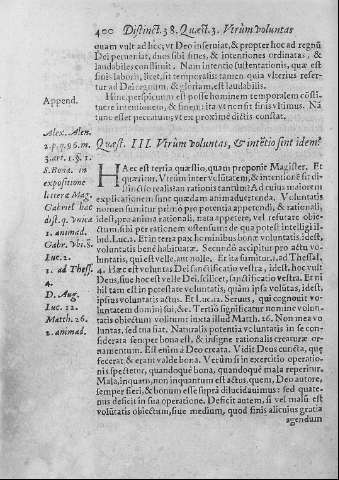 400 Distinct. 38. Quæst. 3. Vtrùm voluntas
quam vult ad hoc, vt Deo inseruiat, & propter hoc ad regnũ
Dei perueniat, duos sibi fines, & intentiones ordinatas, &
laudabiles constituit. Nam intentio sustentationis, quæ est
finis laborũ, licet sit temporalis: tamen quia vlterius refer-
tur ad Dei regnum, & gloriam, est laudabilis.
Append.
Hinc perspicuum est posse hominem temporalem cõsti-
tuere intentionem, & finem: ita vt nen sit finis vltimus. Nã
tunc esset peccatum, vt ex proximè dictis constat.
Alex. Alen.
2. p. q. 96. m.
3. art. 1. §. 1.
S. Bona. in
expositione
litteræ Mag.
Gabriel hac
dist. q. vnica
1. animad.
Gabr. Vbi S.
Luc. 2.
1. ad Thess.
4.
D. Aug.
Luc. 12.
Matth. 26.
2. animad.
Quæst. III. Vtrùm voluntas, & intẽtio sint idem?
HAec est tertia quæstio, quam proponit Magister. Et
quæritur. Vtrum inter volũtatem, & intentionẽ sit di-
stinctio realis an rationis tantum? Ad cuius maiorem
explicationem sunt quædam animaduertenda. Voluntatis
nomen sumitur primo pro potentia appetendi, & rationali,
idest, pro anima rationali, nata appetere, vel refutare obie-
ctum, sibi per rationem ostensum: de qua potest intelligi il-
lud. Luca. 2. Et in terra pax hominibus bonæ voluntatis idest,
voluntatis benè habituatæ. Secundò accipitur pro actu vo-
luntatis, qui est velle, aut nolle. Et ita sumitur. 1. ad Thessal.
4. Hæc est voluntas Dei sanctificatio vestra, idest, hoc vult
Deus, siue hoc est velle Dei, scilicet, sanctificatio vestra. Et ni
hil tam est in potestate voluntatis, quàm ipsa volũtas, idest,
ipsius voluntatis actus. Et Luc. 12. Seruus, qui cognouit vo-
luntatem domini sui, &c. Tertio significatur nomine volun-
tatis obiectum volitum iuxta illud Matth. 26. Non mea vo
luntas, sed tua fiat. Naturalis potentia voluntatis in se con-
siderata semper bona est, & insigne rationalis creaturæ or-
namentum. Est enim à Deo creata. Vidit Deus cuncta, quę
fecerat & erant valde bona. Verùm si in exercitio operatio-
nis spectetur, quandoquè bona, quandoquè mala reperitur.
Mala, inquam, non inquantum est actus, quem, Deo autore,
semper fieri, & bonum esse suprà dilucidauimus: sed quate-
nus deficit in sua operatione. Deficit autem, si vel malũ est
volũtatis obiectum, siue medium, quod finis alicuius gratia
agendum